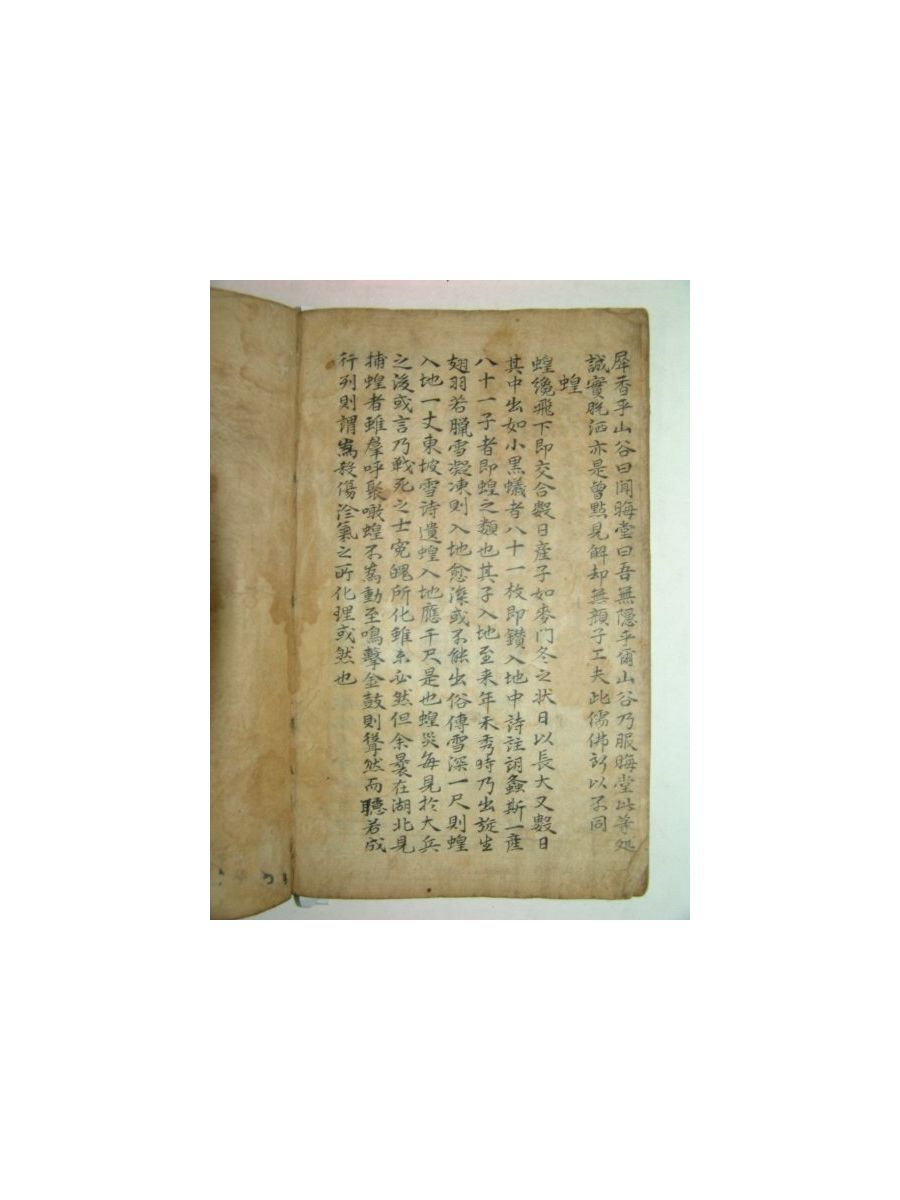 犀香乎山谷曰聞晦堂曰吾無隠乎爾山谷乃服晦堂此等処
誠實脱洒亦是曾點見解却無顔子工夫此儒佛所以不同
蝗
蝗纔飛下即交合數日産子如麥门冬之状日以長大又數日
其中出如小黒蟻者八十一枚即鑚入地中詩註謂螽斯一産
八十一子者即蝗之類也其子入地至来年禾秀時乃出旋生
翅羽若臘雪凝凍則入地愈深或不能出俗傳雪深一尺則蝗
入地一丈東坡雪詩遺蝗入地應千尺是也蝗災每見扵大兵
之後或言乃戰死之士冤魄所化雖未必然但余曩在湖北見
捕蝗者雖羣呼聚噉蝗不爲動至鳴擊金鼓則聳然而聽若成
行列則謂爲殺傷沴氣之所化理或然也